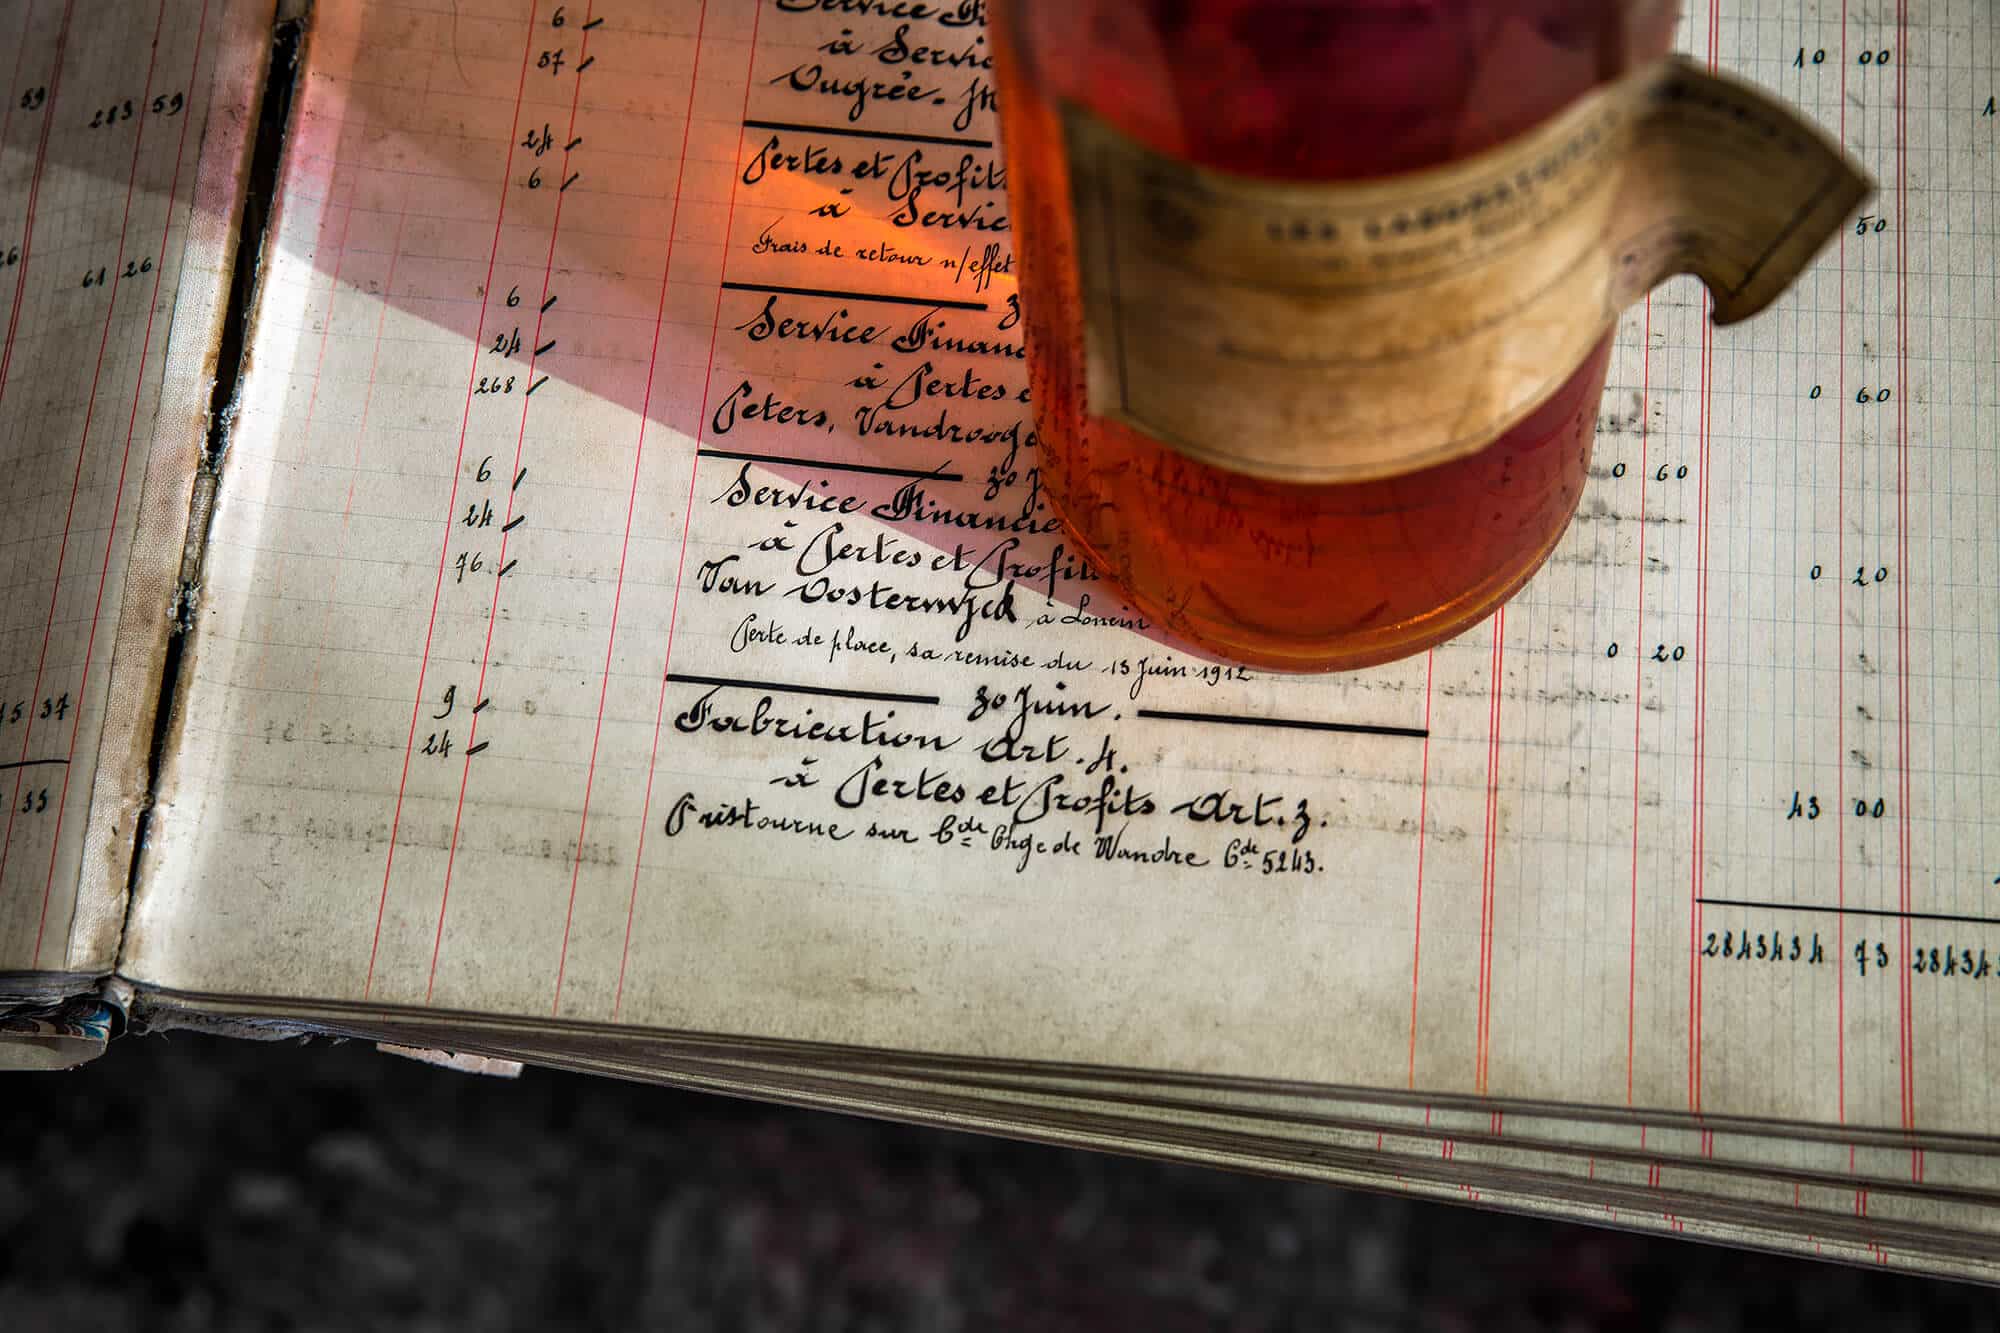 59
283 59
26
61 26
15 37
33
6 Service Fi
à Servic
57 Ougrée-M
24 Pertes et Profit
6 à Servic
Frais de retour n/effet
6 Service Financ
24 à Pertes e
268 Peters, Vandrooge
30 J
6 Service Financie
24 à Pertes et Profit
76 Van Oosterwyck à Loncin
Perte de place, sa remise du 13 Juin 1912
30 Juin.
9 Fabrication Art. 4.
24 à Pertes et Profits Art. 3.
Ristourne sur Cde Chge de Wandre Cde 5243.
LES LABORATOIRES
10 00
50
0 60
0 60
0 20
0 20
43 00
2843434 73 28434